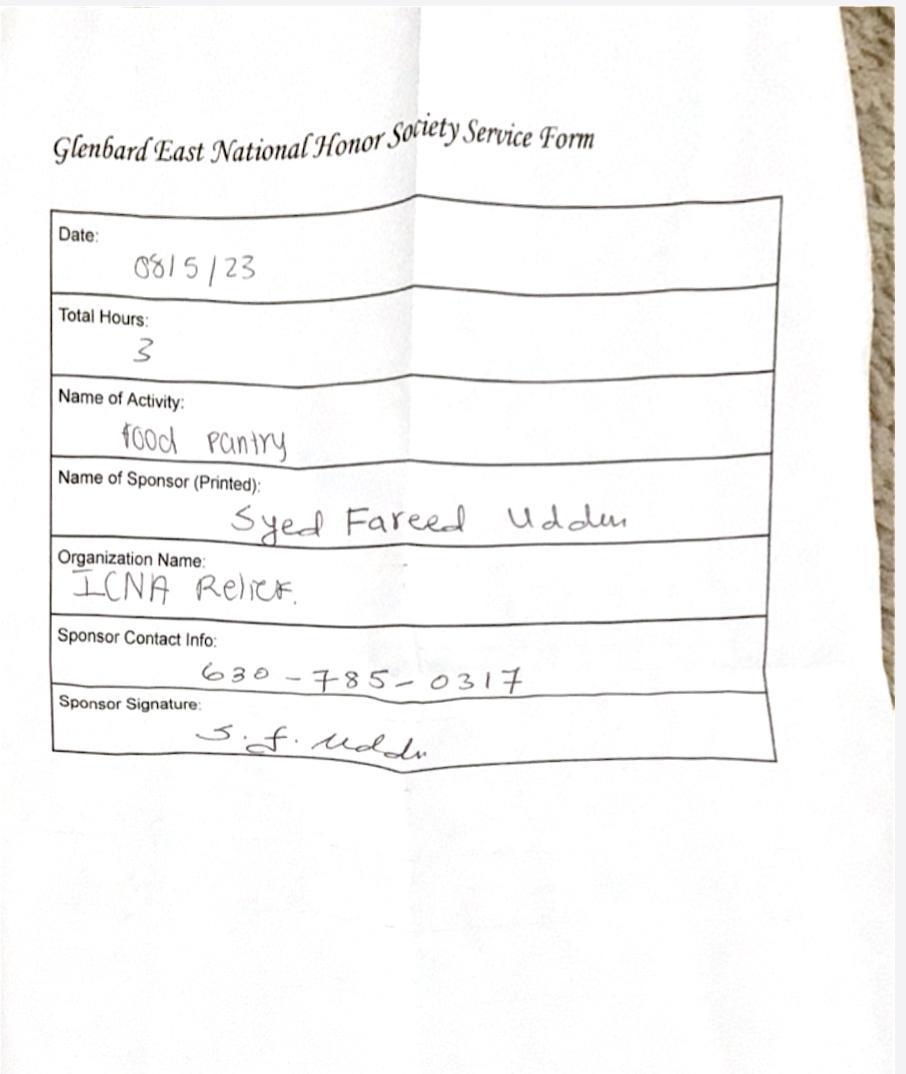 Glenbard East National Honor Society Service Form
Date:
08/5/23
Total Hours:
3
Name of Activity:
food pantry
Name of Sponsor (Printed):
Syed Fareed Uddin
Organization Name:
ICNA Relief.
Sponsor Contact Info:
630-785-0317
Sponsor Signature:
S. f. Uddin